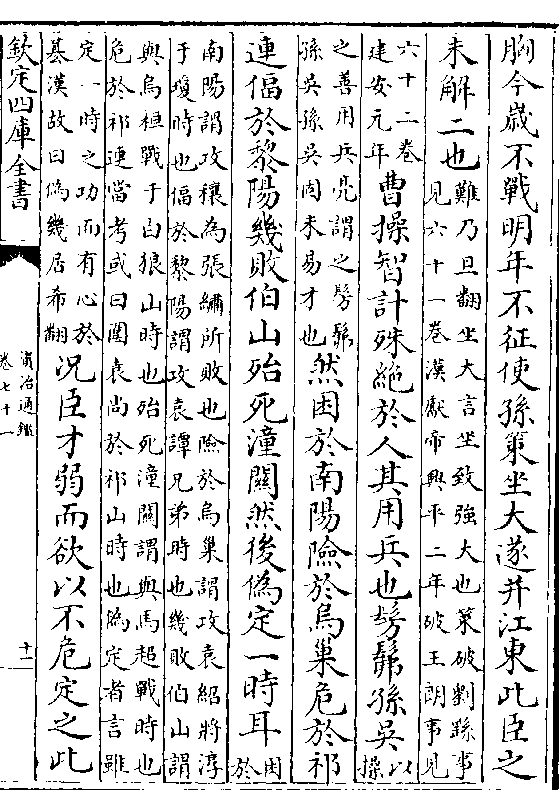 胸今歲不戰明年不征使孫策坐大遂并江東此臣之
未解二也
難乃旦翻坐大言坐致強大也策破劉繇事
見六十一卷漢獻帝興平二年破王朗事見
六十二卷
建安元年
曹操智計殊絕於人其用兵也髣髴孫吳
以
操
之善用兵亮謂之髣髴
孫吳孫吳固未易才也
然困於南陽險於烏巢危於祁
連偪於黎陽幾敗伯山殆死潼關然後偽定一時耳
困
於
南陽謂攻穰為張繡所敗也險於烏巢謂攻袁紹將淳
于瓊時也偪於黎陽謂攻袁譚兄弟時也幾敗伯山謂
與烏桓戰于白狼山時也殆死潼關謂與馬超戰時也
危於祁連當考或曰圍袁尚於祁山時也偽定者言雖
定一時之功而有心於
基漢故曰偽幾居希翻
況臣才弱而欲以不危定之此
欽定四庫全書
資治通鑑
卷七十一
十二